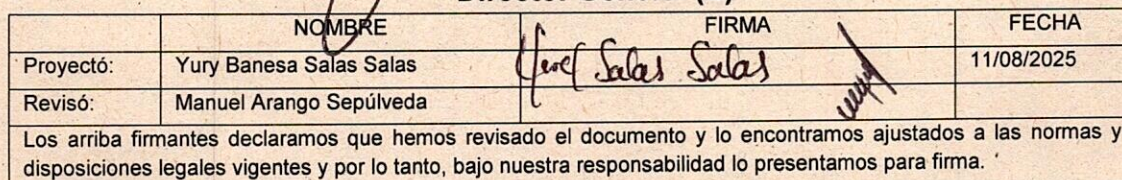 NOMBRE FIRMA FECHA
Proyectó: Yury Banesa Salas Salas Salas Salas 11/08/2025
Revisó: Manuel Arango Sepúlveda
Los arriba firmantes declaramos que hemos revisado el documento y lo encontramos ajustados a las normas y
disposiciones legales vigentes y por lo tanto, bajo nuestra responsabilidad lo presentamos para firma.